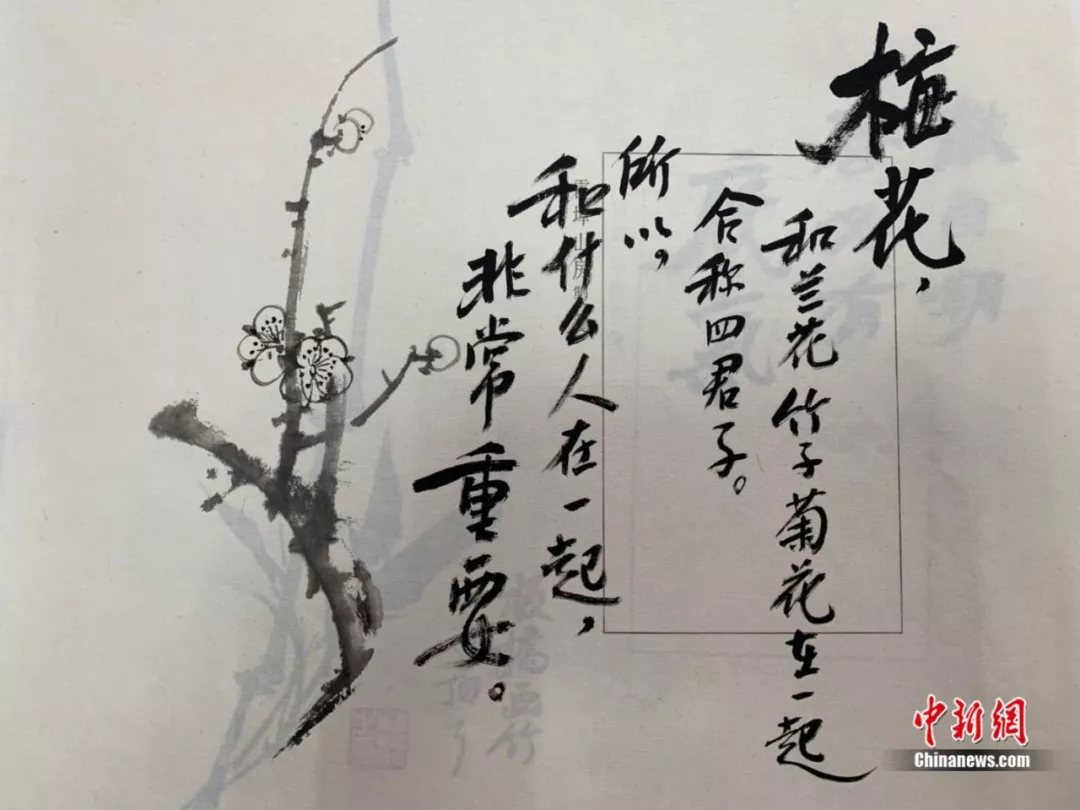 梅花，
和兰花竹子菊花在一起
合称四君子。
所以，
和什么人在一起，
非常重要。
中新網
Chinanews.com